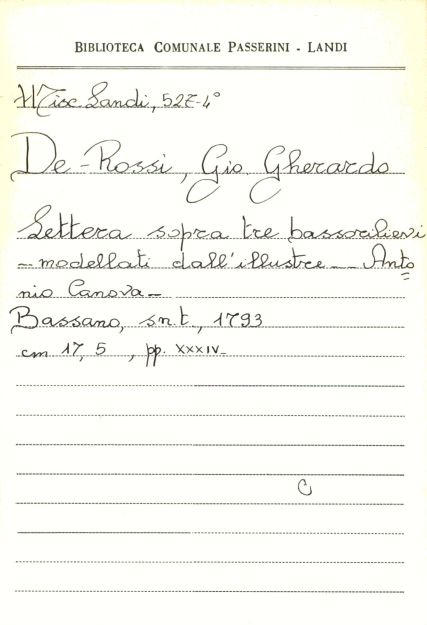 BIBLIOTECA COMUNALE PASSERINI - LANDI
Misc. Landi, 527-4°
De-Rossi, Gio. Gherardo
Lettera sopra tre bassorilievi
- modellati dall'illustre - Anto
nio Canova -
Bassano, s.n.t., 1793
cm 17,5 , pp. XXXIV-